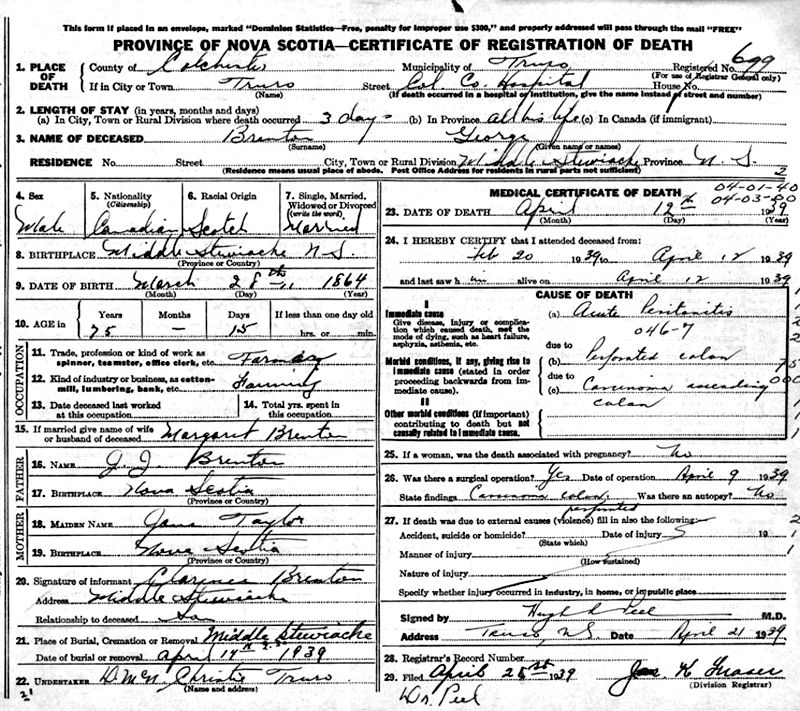 This form if placed in an envelope, marked "Dominion Statistics—Free, penalty for improper use $300," and properly addressed will pass through the mail "FREE"
PROVINCE OF NOVA SCOTIA—CERTIFICATE OF REGISTRATION OF DEATH
1. PLACE OF DEATH County of Colchester Municipality of Truro Registered No. 699
(For use of Registrar General only)
If in City or Town Truro Street Col. Co. Hospital House No.
(Name) (If death occurred in a hospital or institution, give the name instead of street and number)
2. LENGTH OF STAY (in years, months and days)
(a) In City, Town or Rural Division where death occurred 3 days (b) In Province all his life (c) In Canada (if immigrant)
3. NAME OF DECEASED Brenton George
(Surname) (Given name or names)
RESIDENCE No. Street City, Town or Rural Division Middle Stewiacke Province N. S.
(Residence means usual place of abode. Post Office Address for residents in rural parts not sufficient) 2
4. Sex 5. Nationality (Citizenship) 6. Racial Origin 7. Single, Married, Widowed or Divorced (write the word)
Male Canadian Scotch Married
8. BIRTHPLACE Middle Stewiacke N.S.
(Province or Country)
9. DATE OF BIRTH March 28th 1864
(Month) (Day) (Year)
10. AGE in Years Months Days If less than one day old
75 — 15 hrs. or min.
OCCUPATION
11. Trade, profession or kind of work as spinner, teamster, office clerk, etc. Farmer
12. Kind of industry or business, as cotton-mill, lumbering, bank, etc. Farming
13. Date deceased last worked at this occupation 14. Total yrs. spent in this occupation
15. If married give name of wife or husband of deceased Margaret Brenton
FATHER
16. NAME J. J. Brenton
17. BIRTHPLACE Nova Scotia
(Province or Country)
MOTHER
18. MAIDEN NAME Jane Taylor
19. BIRTHPLACE Nova Scotia
(Province or Country)
20. Signature of informant Clarence Brenton
Address Middle Stewiacke
Relationship to deceased Son
21. Place of Burial, Cremation or Removal Middle Stewiacke
Date of burial or removal April 14th 1939
22. UNDERTAKER D. McN. Christie Truro
(Name and address)
21
MEDICAL CERTIFICATE OF DEATH 04-01-40
04-03-80
23. DATE OF DEATH April 12th 1939
(Month) (Day) (Year)
24. I HEREBY CERTIFY that I attended deceased from:
Feb 20 1939 to April 12 1939
and last saw him alive on April 12 1939
CAUSE OF DEATH
I
Immediate cause
Give disease, injury or complication which caused death, not the mode of dying, such as heart failure, asphyxia, asthenia, etc.
(a) Acute Peritonitis
046-7
due to
Morbid conditions, if any, giving rise to immediate cause (stated in order proceeding backwards from immediate cause).
(b) Perforated colon
due to
(c) Carcinoma ascending colon
II
Other morbid conditions (if important) contributing to death but not causally related to immediate cause.
25. If a woman, was the death associated with pregnancy? No
26. Was there a surgical operation? Yes Date of operation April 9 1939
State findings Carcinoma colon, perforated Was there an autopsy? No
27. If death was due to external causes (violence) fill in also the following:
Accident, suicide or homicide? Date of injury 19
(State which)
Manner of injury
(How sustained)
Nature of injury
Specify whether injury occurred in industry, in home, or in public place
Signed by Hugh R Peel M.D.
Address Truro, N.S. Date April 21 1939
28. Registrar's Record Number
29. Filed April 25th 1939 Jas. K Fraser
(Division Registrar)
Dr. Peel